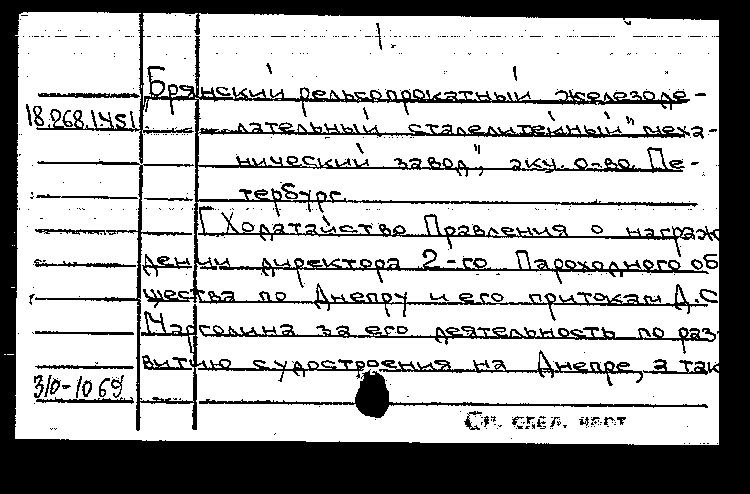 1.
"Брянский рельсопрокатный железоде-
18.268.1451
лательный сталелитейный и меха-
нический завод", акц. о-во. Пе-
тербург.
[Ходатайство Правления о награж
дении директора 2-го Пароходного об
щества по Днепру и его притокам Д.С
Марголина за его деятельность по раз
витию судостроения на Днепре, а так
310-1069
См. след. карт